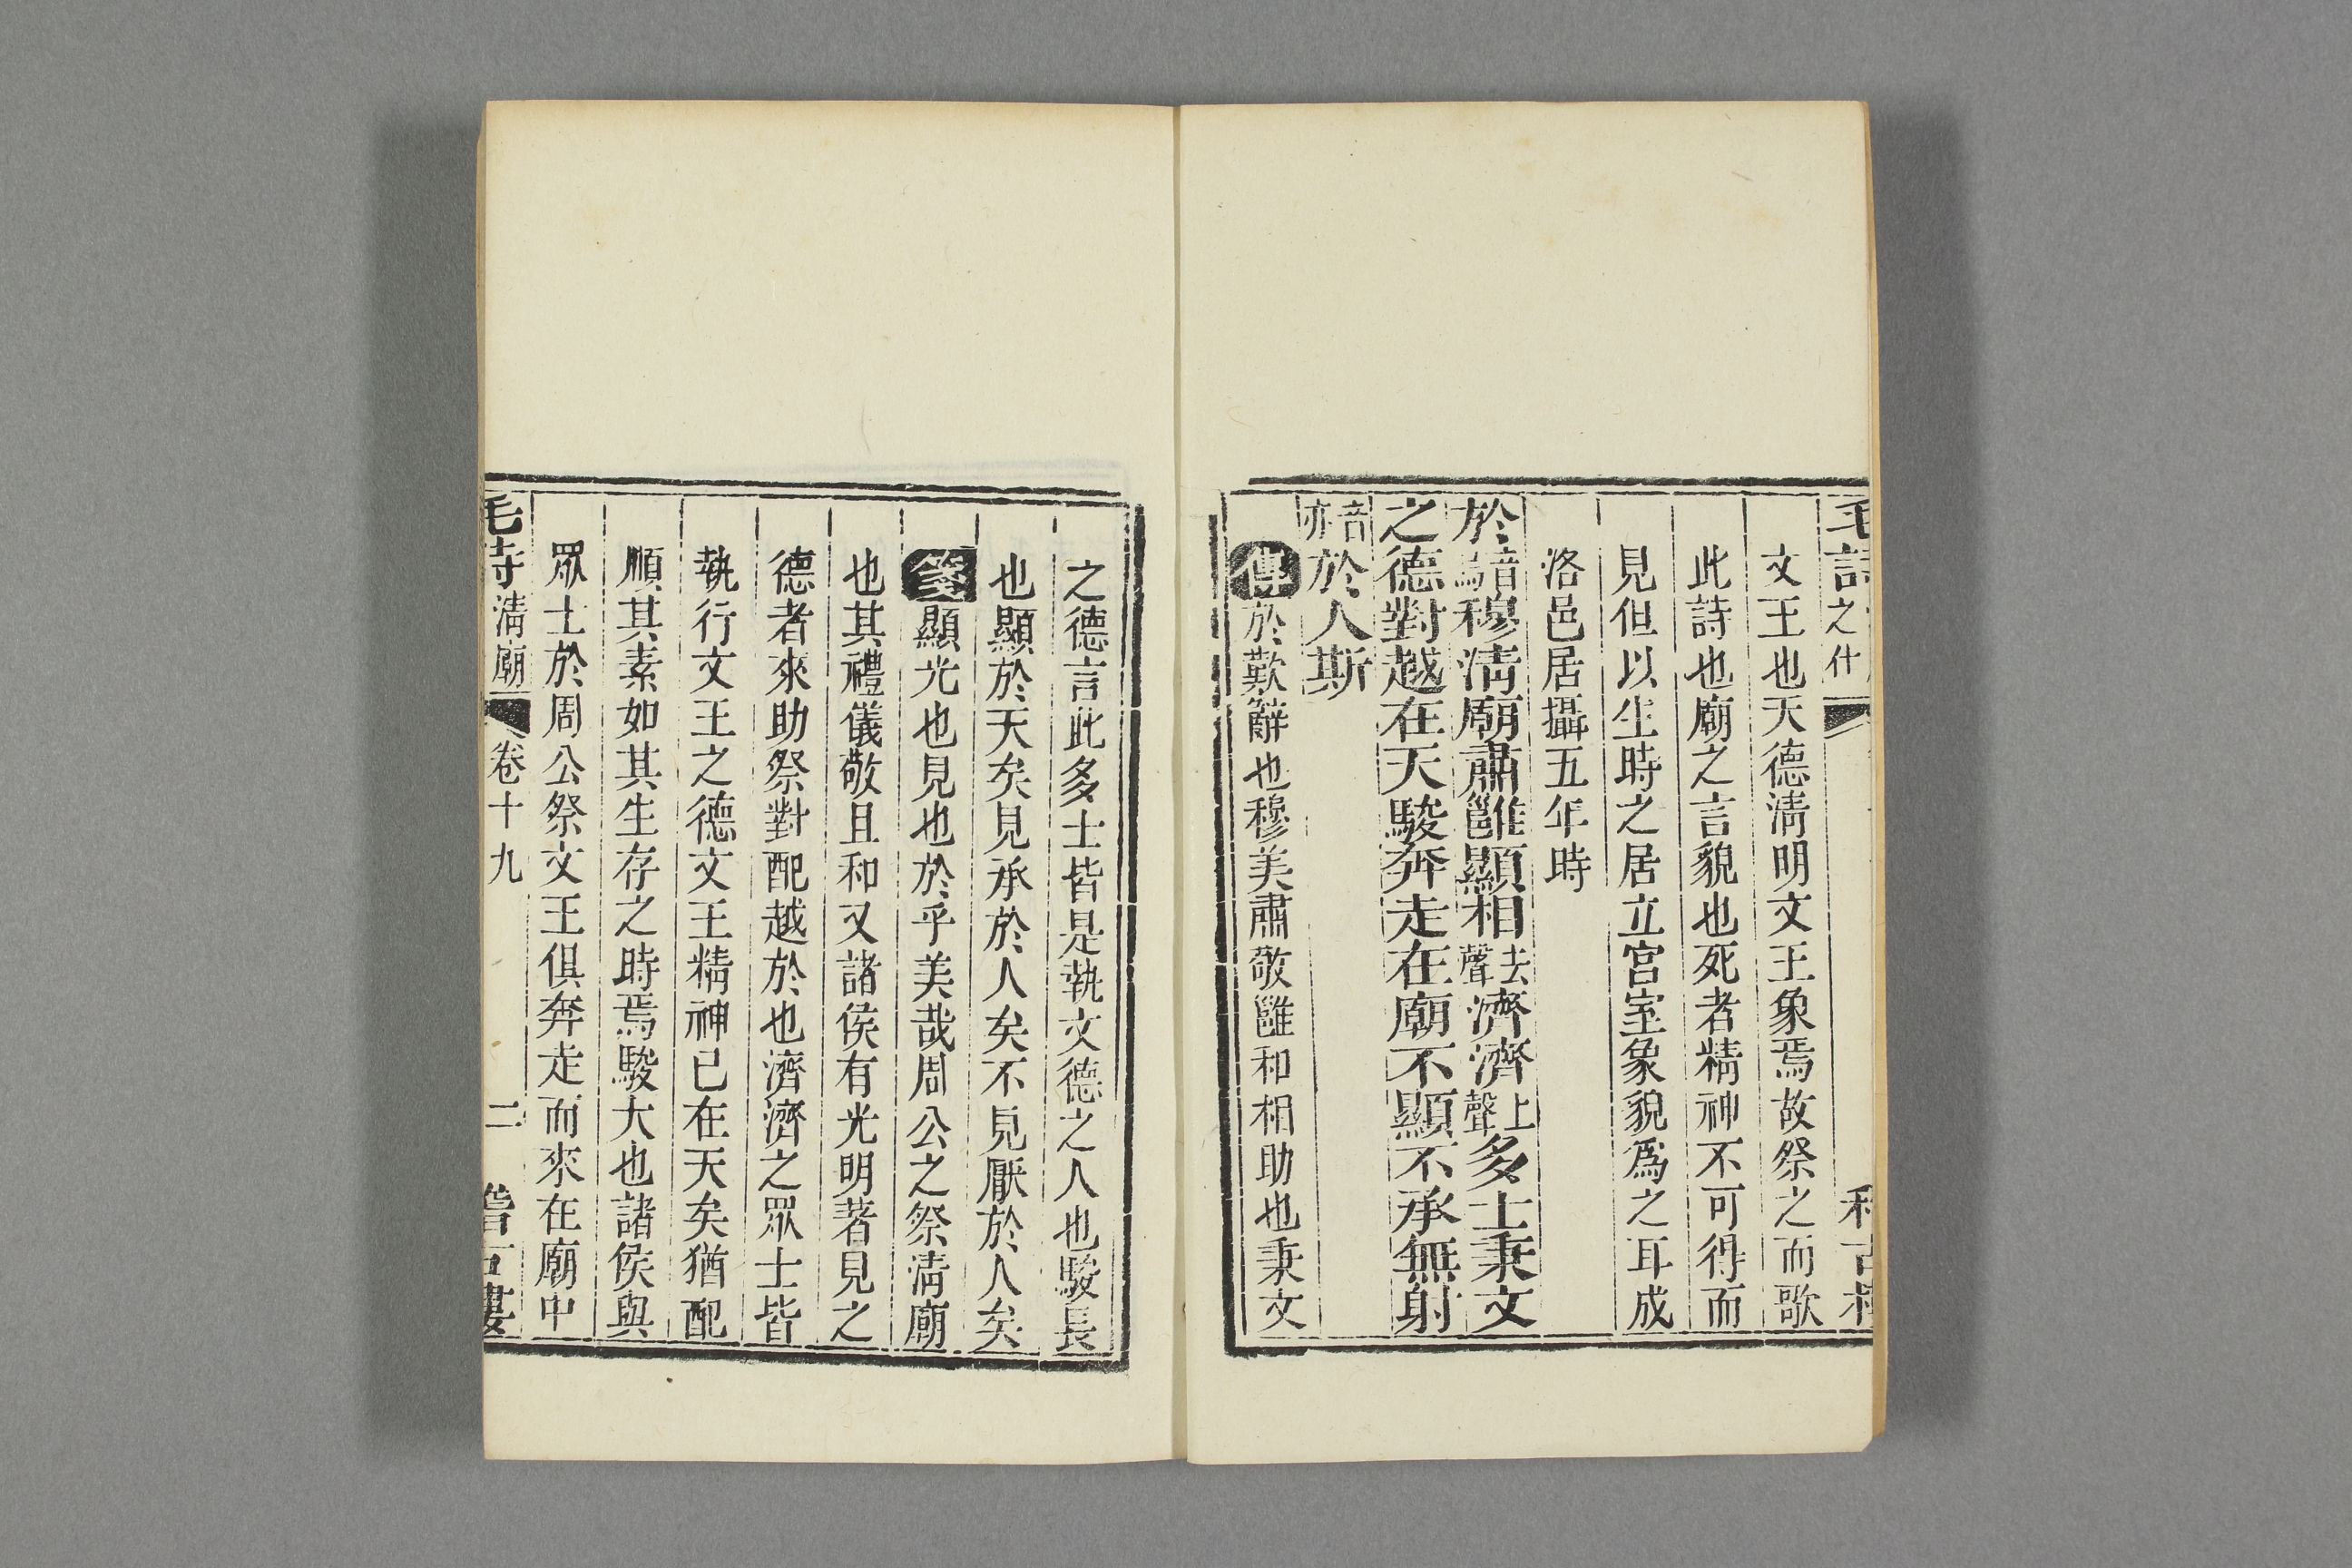 毛詩之什
文王也天德淸明文王象焉故祭之而歌
此詩也廟之言貌也死者精神不可得而
見但以生時之居立宮室象貌爲之耳成
洛邑居攝五年時
於音烏穆淸廟肅雝顯相去聲濟濟上聲多士秉文
之德對越在天駿奔走在廟不顯不承無射
音亦於人斯
傳於歎辭也穆美肅敬雝和相助也秉文
之德言此多士皆是執文德之人也駿長
也顯於天矣見承於人矣不見厭於人矣
箋顯光也見也於乎美哉周公之祭淸廟
也其禮儀敬且和又諸侯有光明著見之
德者來助祭對配越於也濟濟之眾士皆
執行文王之德文王精神已在天矣猶配
順其素如其生存之時焉駿大也諸侯與
眾士於周公祭文王俱奔走而來在廟中
毛詩淸廟 卷十九 二